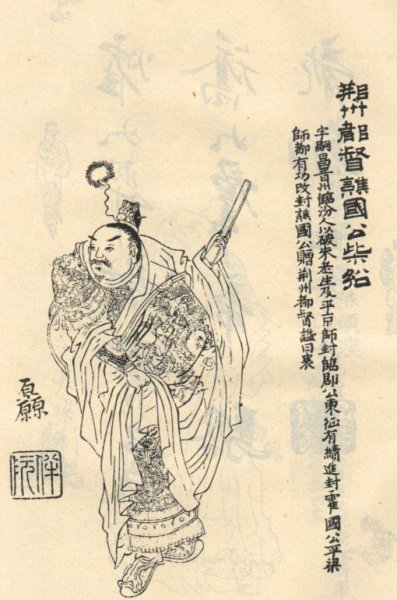 荊州都督譙國公柴紹
字嗣昌晉州臨汾人以破宋老生及平京師封臨即公東征有績進封霍國公平梁
師都有功改封譙國公贈荊州都督諡曰襄
伴阮